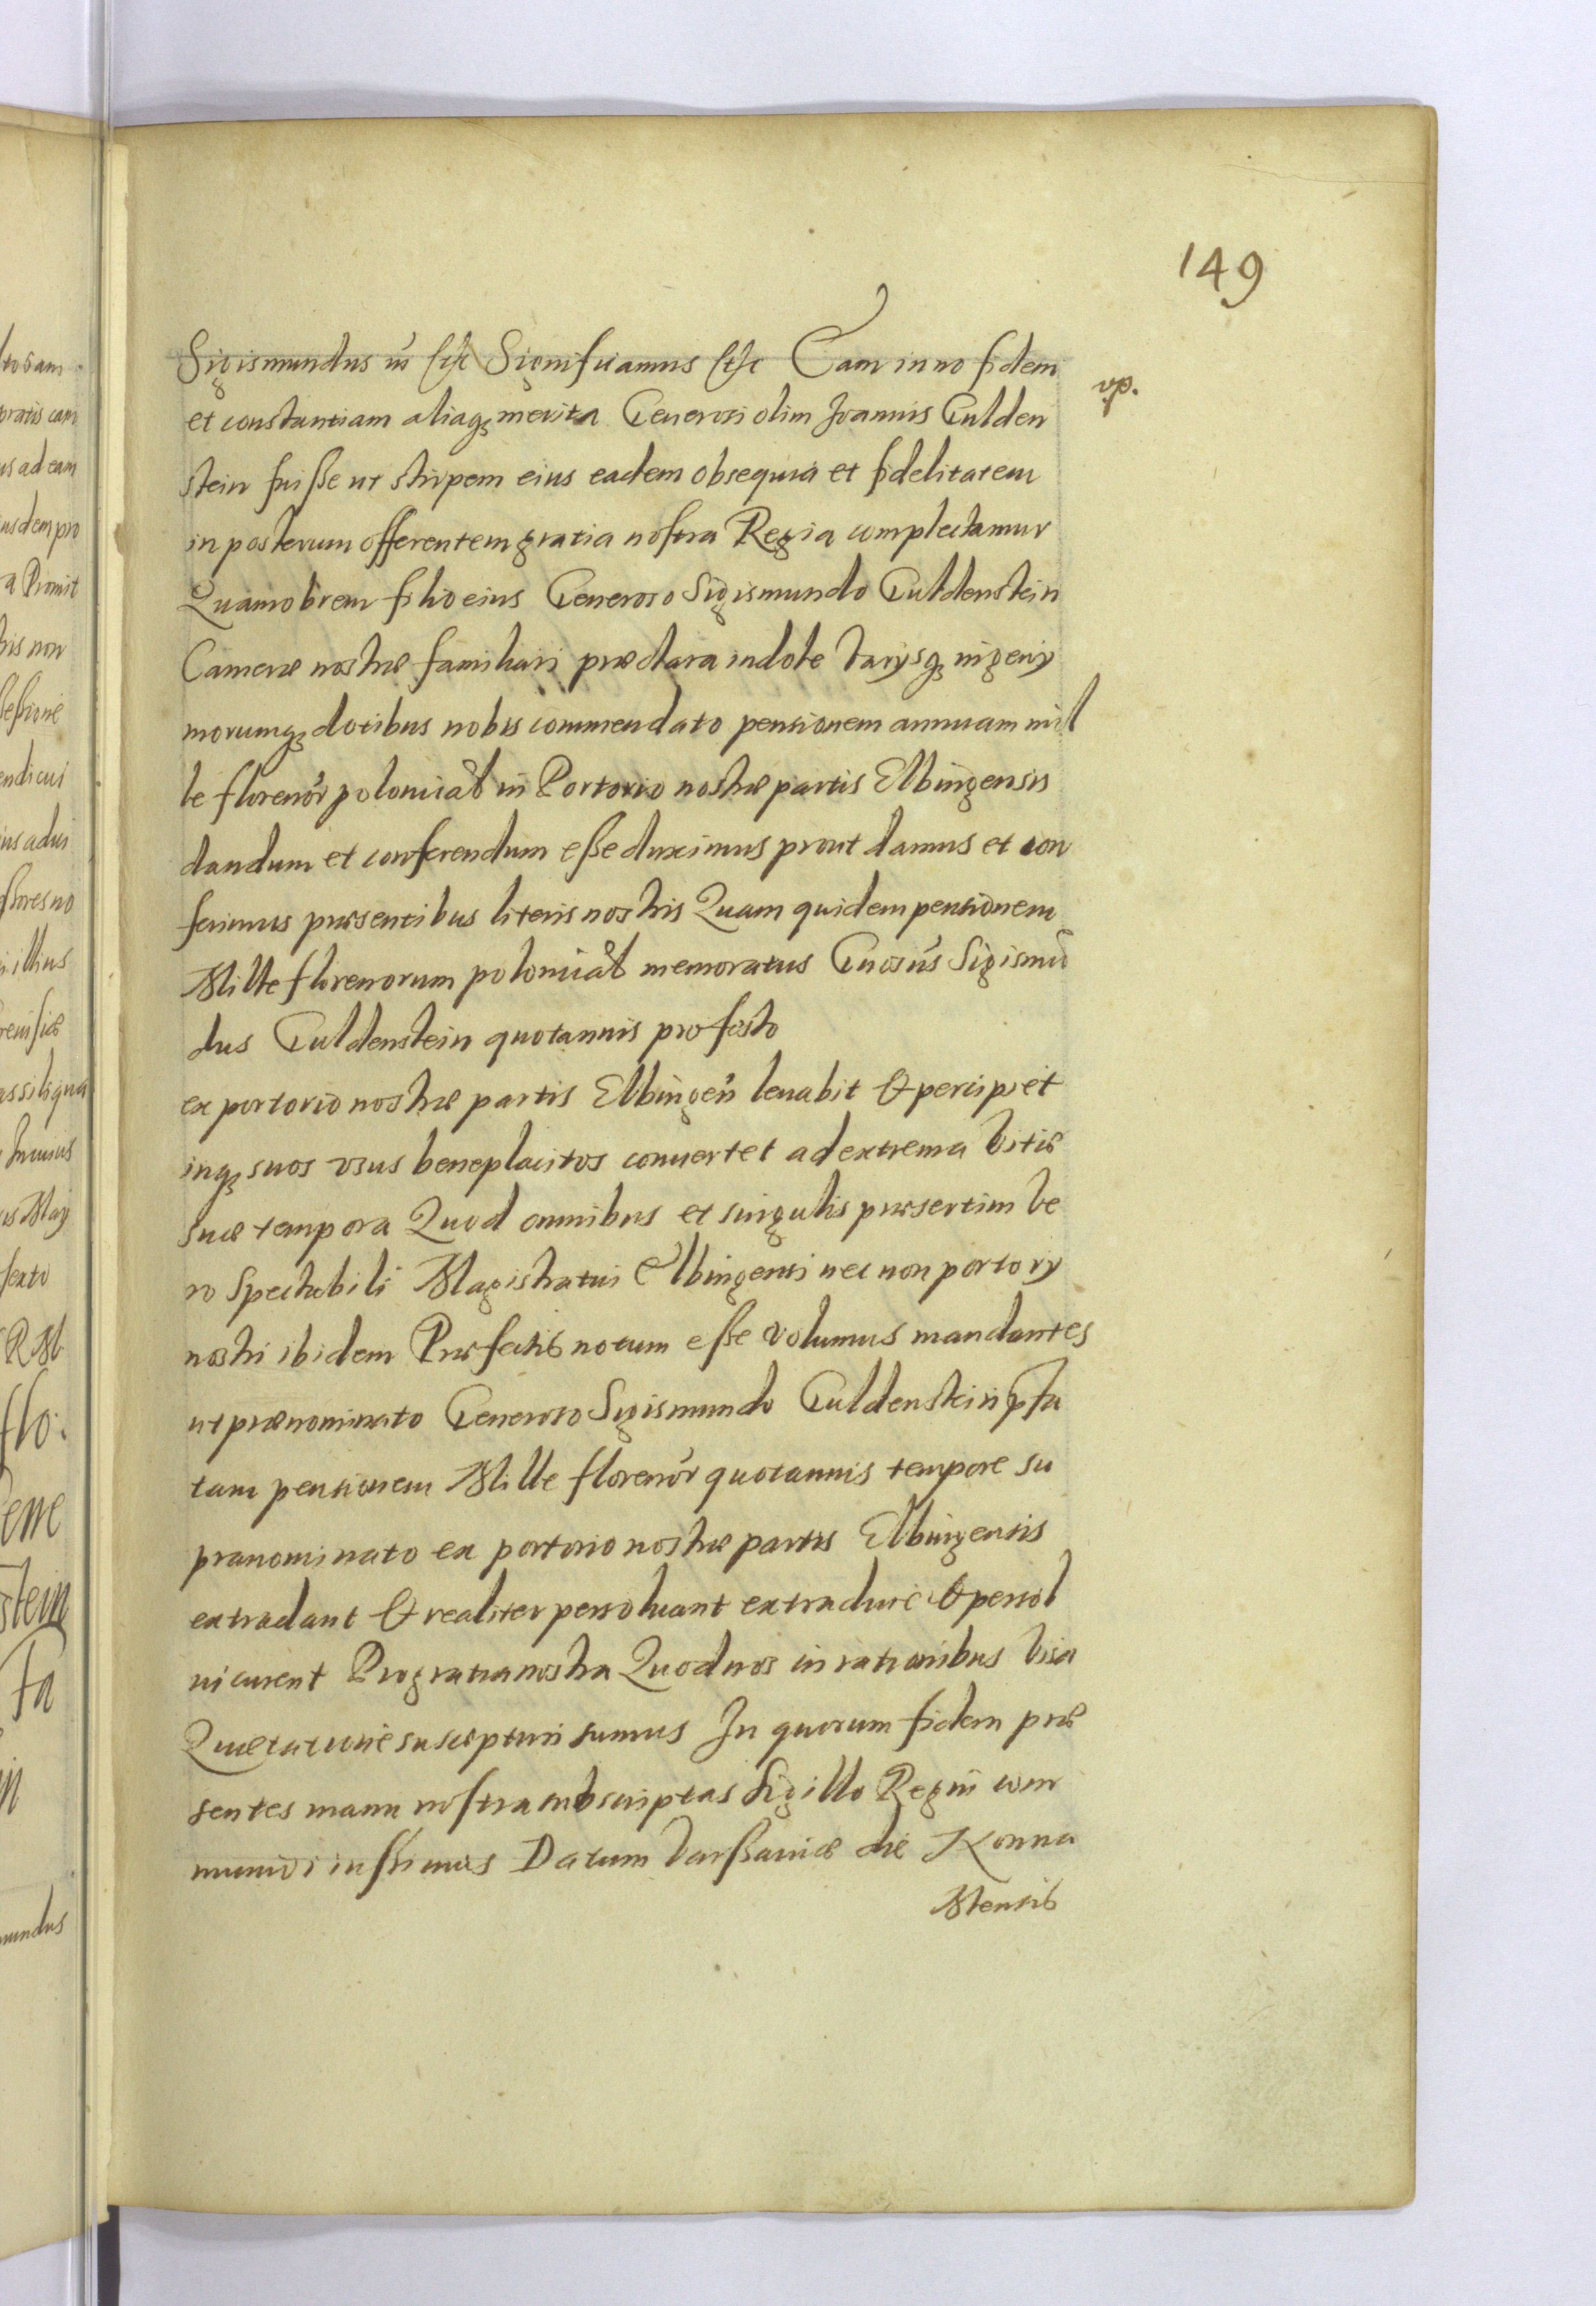 149
Sigismundus iii etc Significamus etc Eam in no fidem
vp.
et constantiam aliaq; merita Generosi olim Joannis Gulden
stein fuisse ut stirpem eius eadem obsequia et fidelitatem
in posterum offerentem gratia nostra Regia complectamur
Quamobrem filio eius Generoso Sigismundo Guldenstein
Cameræ nostræ familiari præclara indole varysq; ingeny
morumq; dotibus nobis commendato pensionem annuam mil
le florenor polonical in Portorio nostræ partis Elbingensis
dandum et conferendum esse duximus prout damus et con
ferimus præsentibus literis nostris Quam quidem pensionem
Mille florenorum polonical memoratus Gnosus Sigismū
dus Guldenstein quotannis pro festo
ex portorio nostræ partis Elbingen levabit & percipiet
inq; suos usus beneplacitos convertet ad extrema vitæ
suæ tempora Quod omnibus et singulis præsertim ve
ro Spectabili Magistratui Elbingensi nec non portory
nostri ibidem Præfectis notum esse volumus mandantes
ut prænominato Generoso Sigismundo Guldenstein præfa
tam pensionem Mille florenor quotannis tempore su
pranominato ex portorio nostræ partis Elbingensis
extradant & realiter persoluant extradurē & persol
ui curent Pro gratia nostra Quod nos in rationibus visa
Quietatione suscepturi sumus In quorum fidem præ
sentes manu nostra subscriptas Sigillo Regni com
muniri iussimus Datum Varssaviæ die Nonna
Mensis
to sam
oratis cam
us ad eam
iusdem pro
a Promit
his non
sessione
endi cui
ius adui
sores no
illius
assiliqua
us May
sexto
RM
flo:
ene
stein
fa
in
mundus